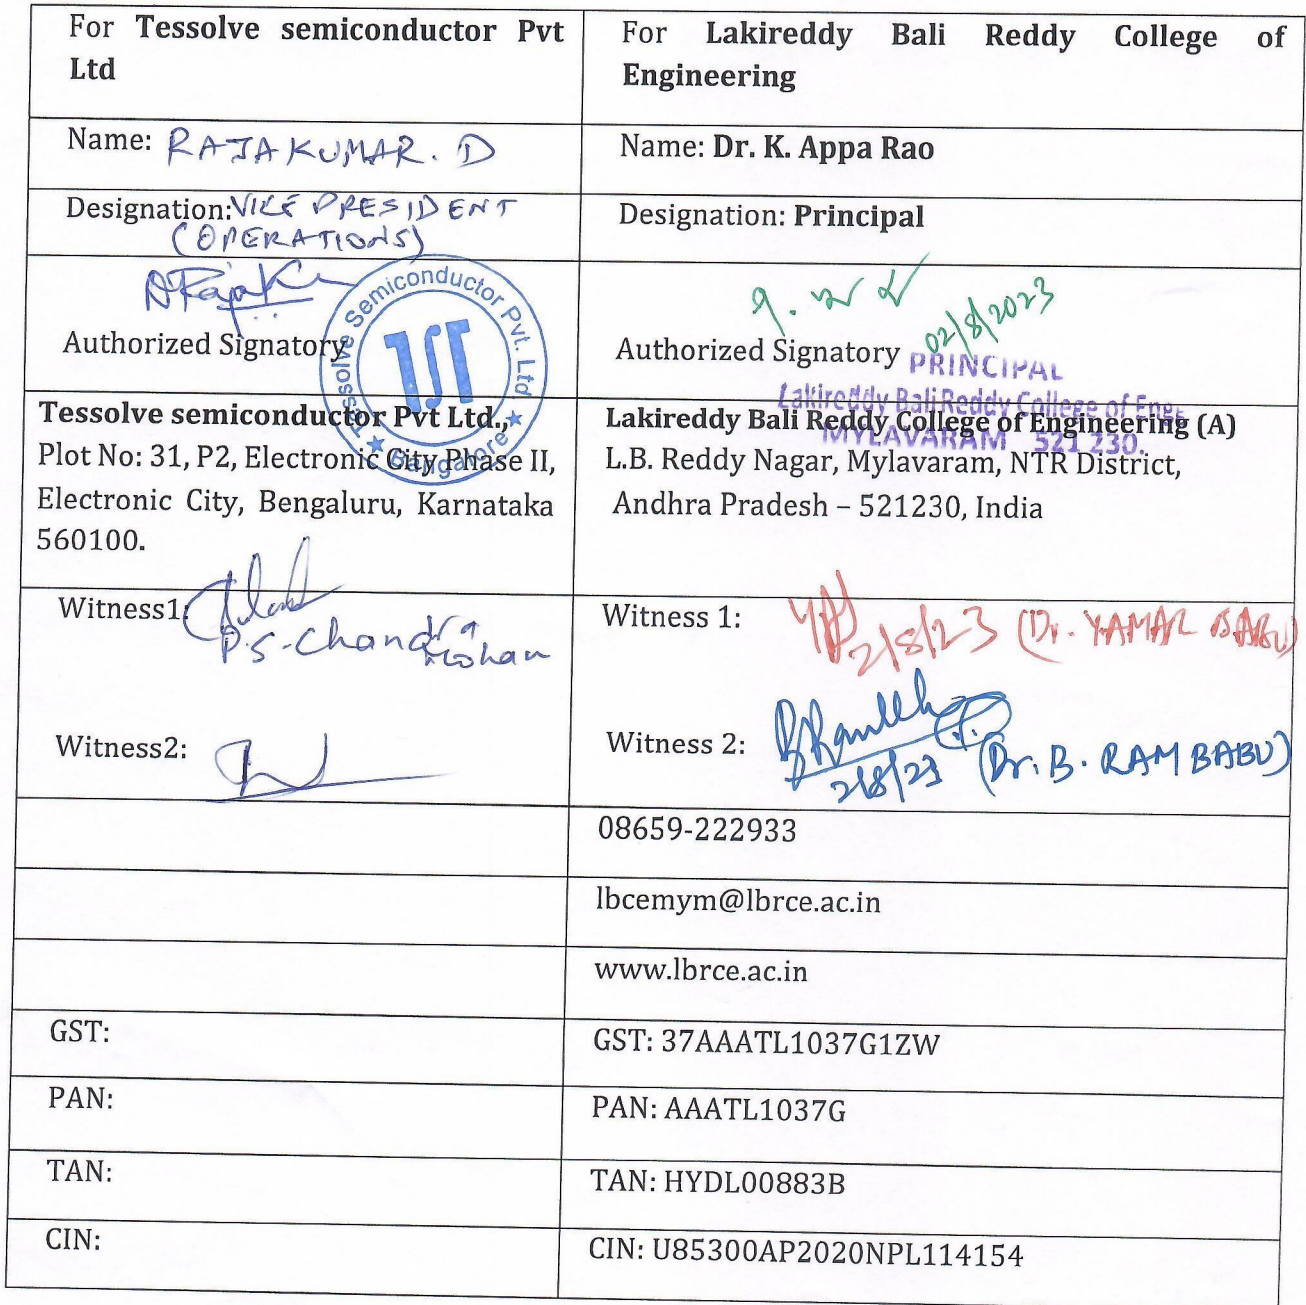 For Tessolve semiconductor Pvt
Ltd
For Lakireddy Bali Reddy College of
Engineering
Name: RAJAKUMAR. D
Name: Dr. K. Appa Rao
Designation: VICE PRESIDENT
(OPERATIONS)
Designation: Principal
Authorized Signatory
Tessolve Semiconductor Pvt. Ltd.
★ Bangalore ★
TST
02/8/2023
Authorized Signatory
PRINCIPAL
Lakireddy Bali Reddy College of Engg
MYLAVARAM 521 230.
Tessolve semiconductor Pvt Ltd.,
Plot No: 31, P2, Electronic City Phase II,
Electronic City, Bengaluru, Karnataka
560100.
Lakireddy Bali Reddy College of Engineering (A)
L.B. Reddy Nagar, Mylavaram, NTR District,
Andhra Pradesh – 521230, India
Witness1:
P.S. Chandra
Mohan
Witness2:
Witness 1:
2/8/23 (Dr. Y.AMAR BABU)
Witness 2:
2/8/23 (Dr. B. RAMBABU)
08659-222933
lbcemym@lbrce.ac.in
www.lbrce.ac.in
GST:
GST: 37AAATL1037G1ZW
PAN:
PAN: AAATL1037G
TAN:
TAN: HYDL00883B
CIN:
CIN: U85300AP2020NPL114154